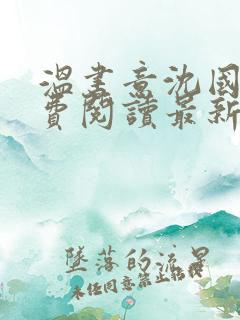 温書意沈國
費閱讀最新
墜落的流星
未经同意禁止转载